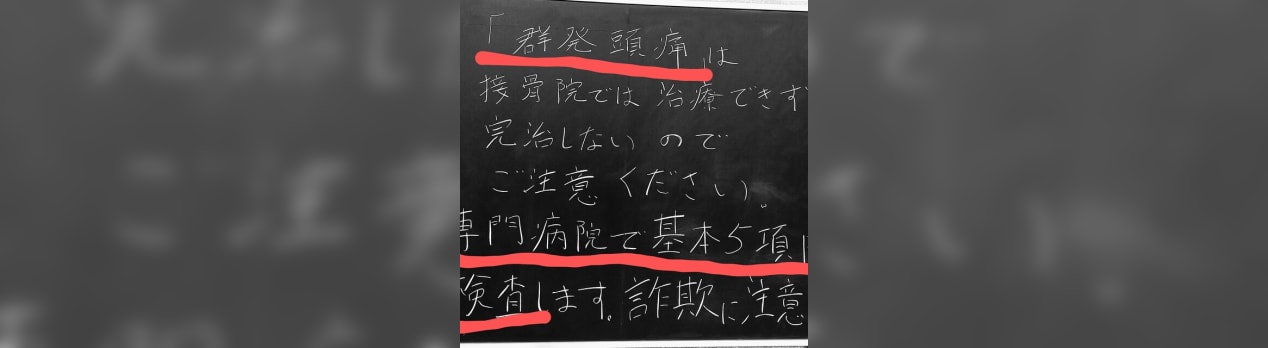 「群発頭痛」は
接骨院では治療できず
完治しないので
ご注意ください。
専門病院で基本5項
検査します。詐欺に注意